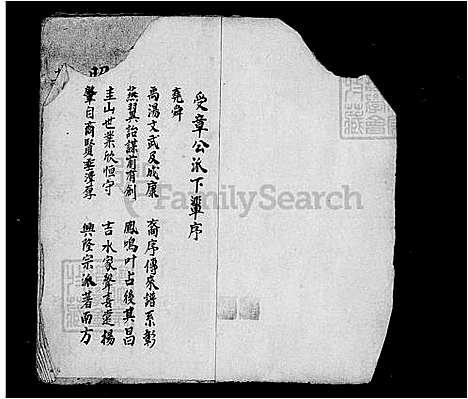 受章公派下輩序
堯舜
禹湯文武及成康 裔序傳來譜系彰
燕翼詒謀前有創 鳳鳴叶占後其昌
圭山世業欣恒守 吉水家聲喜遠揚
肇自商賢垂澤厚 興隆宗派著南方
FamilySearch